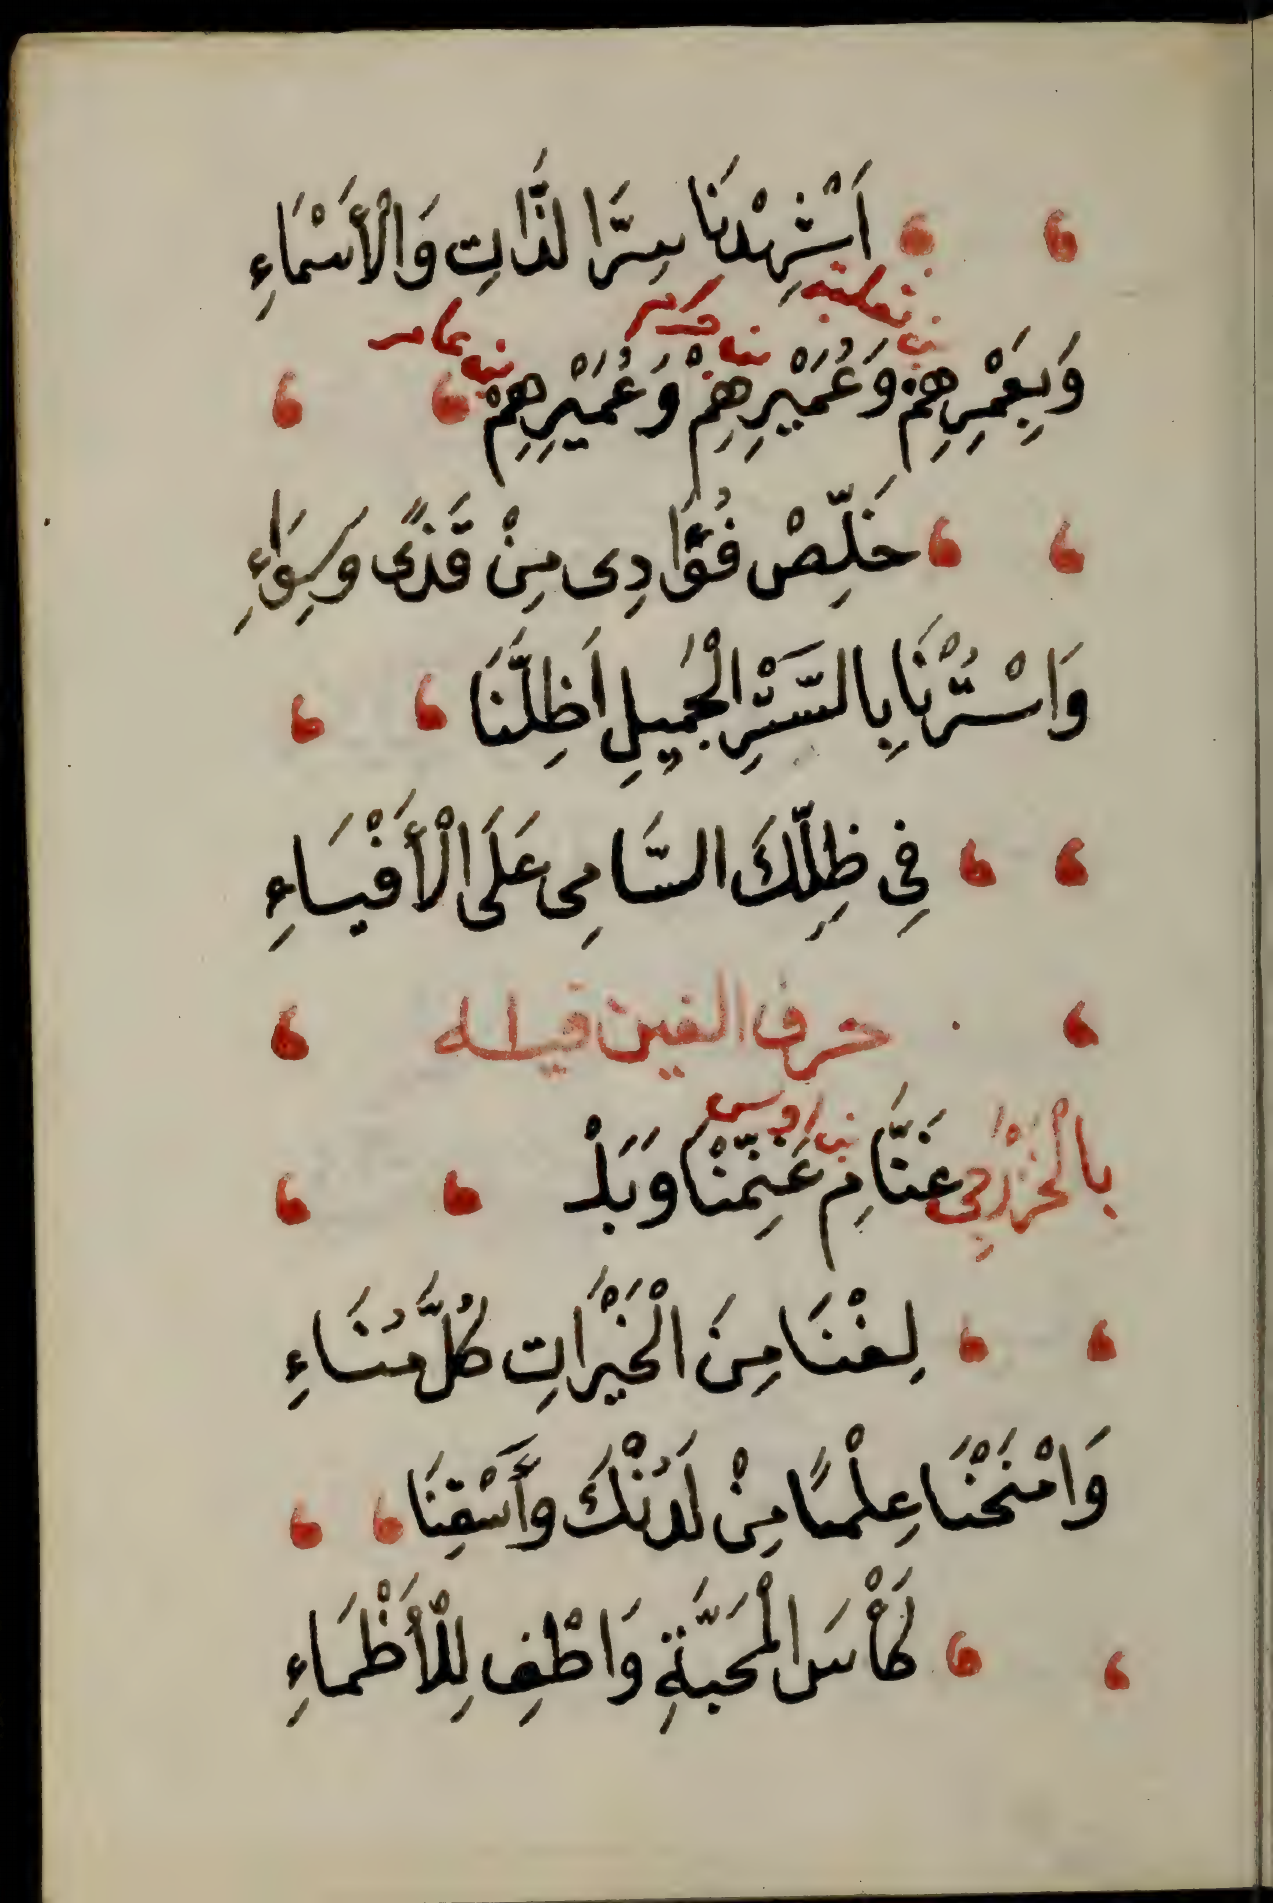 اَشْهِدْنَا سِرَّا لذَّاتِ وَالْأَسْمَاءِ
بن ثعلبة بن حرام بن عامر
وَبِعَمْرِهِمْ وَعُمَيْرِهِمْ وَعُمَيْرِهِمْ
خَلِّصْ فُؤَادِى مِنْ قَذًى وَسِوَاءِ
وَاسْتُرْنَا بِالسَّتْرِ الْجَمِيلِ اَظِلَّنَا
فِى ظِلِّكَ السَّامِى عَلَى الْأَفْيَاءِ
حرف الغين قيلله
بن اوس
بالْخَزْرَجِى غَنَّامِ غَنِّمْنَا وَبَلْـ
ـلِغْنَا مِنَ الْخَيْرَاتِ كُلَّ مُنَاءِ
وَامْنَحْنَا عِلْمًا مِنْ لَدُنْكَ وَأَسْقِنَا
كَأْسَ الْمَحَبَّةِ وَاطْفِ لِلْأَظْمَاءِ